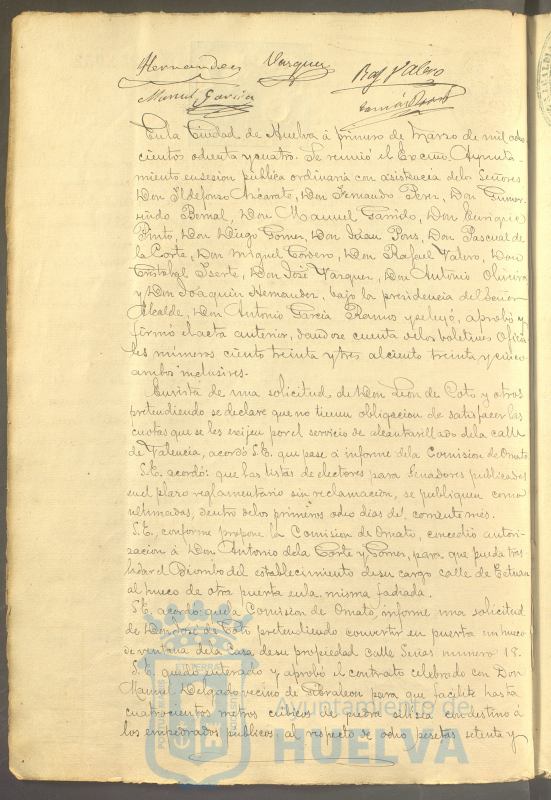 Hernandez Vazquez Raf Valero
Manuel Garcia
En la Ciudad de Huelva á primero de Marzo de mil ocho
cientos ochenta y cuatro. Se reunió el Excmo. Ayunta-
miento en sesion pública ordinaria con asistencia de los Señores
Don Ildefonso Azcarate, Don Fernando Perez, Don Gumer-
sindo Bernal, Don Manuel Garrido, Don Enrique
Pinto, Don Diego Gomez, Don Juan Pons, Don Pascual de
la Corte, Don Miguel Cordero, Don Rafael Valero, Don
Cristobal Iserte, Don José Vazquez, Don Antonio Oliveira
y Don Joaquin Hernandez, bajo la presidencia del Señor
Alcalde, Don Antonio Garcia Ramos y se leyó, aprobó y
firmó el acta anterior, dandose cuenta de los boletines Oficia-
les números ciento treinta y tres al ciento treinta y cinco
ambos inclusives.
En vista de una solicitud de Don Leon de Coto y otros
pretendiendo se declare que no tienen obligacion de satisfacer las
cuotas que se les exijen por el servicio de alcantarillado de la calle
de Valencia, acordó S.E. que pase á informe de la Comision de Ornato
S.E. acordó: que las listas de electores para Senadores publicadas
en el plazo reglamentario sin reclamacion, se publiquen como
ultimadas, dentro de los primeros ocho dias del corriente mes.
S.E., conforme propone la Comision de Ornato, concedió autori-
zacion á Don Antonio de la Corte y Gomez, para que pueda tras
ladar el Biombo del establecimiento de su cargo calle de Tetuan
al hueco de otra puerta en la misma fachada.
S.E. acordó: que la Comision de Ornato, informe una solicitud
de Don José de Coto pretendiendo convertir en puerta un hueco
de ventana de la Casa de su propiedad calle número 18.
S.E. quedó enterado y aprobó el contrato celebrado con Don
Manuel Delgado, vecino de Gibraleon para que facilite hasta
cuatrocientos metros cúbicos de piedra con destino á
los empedrados públicos al respecto de ocho pesetas setenta y
Ayuntamiento de
HUELVA